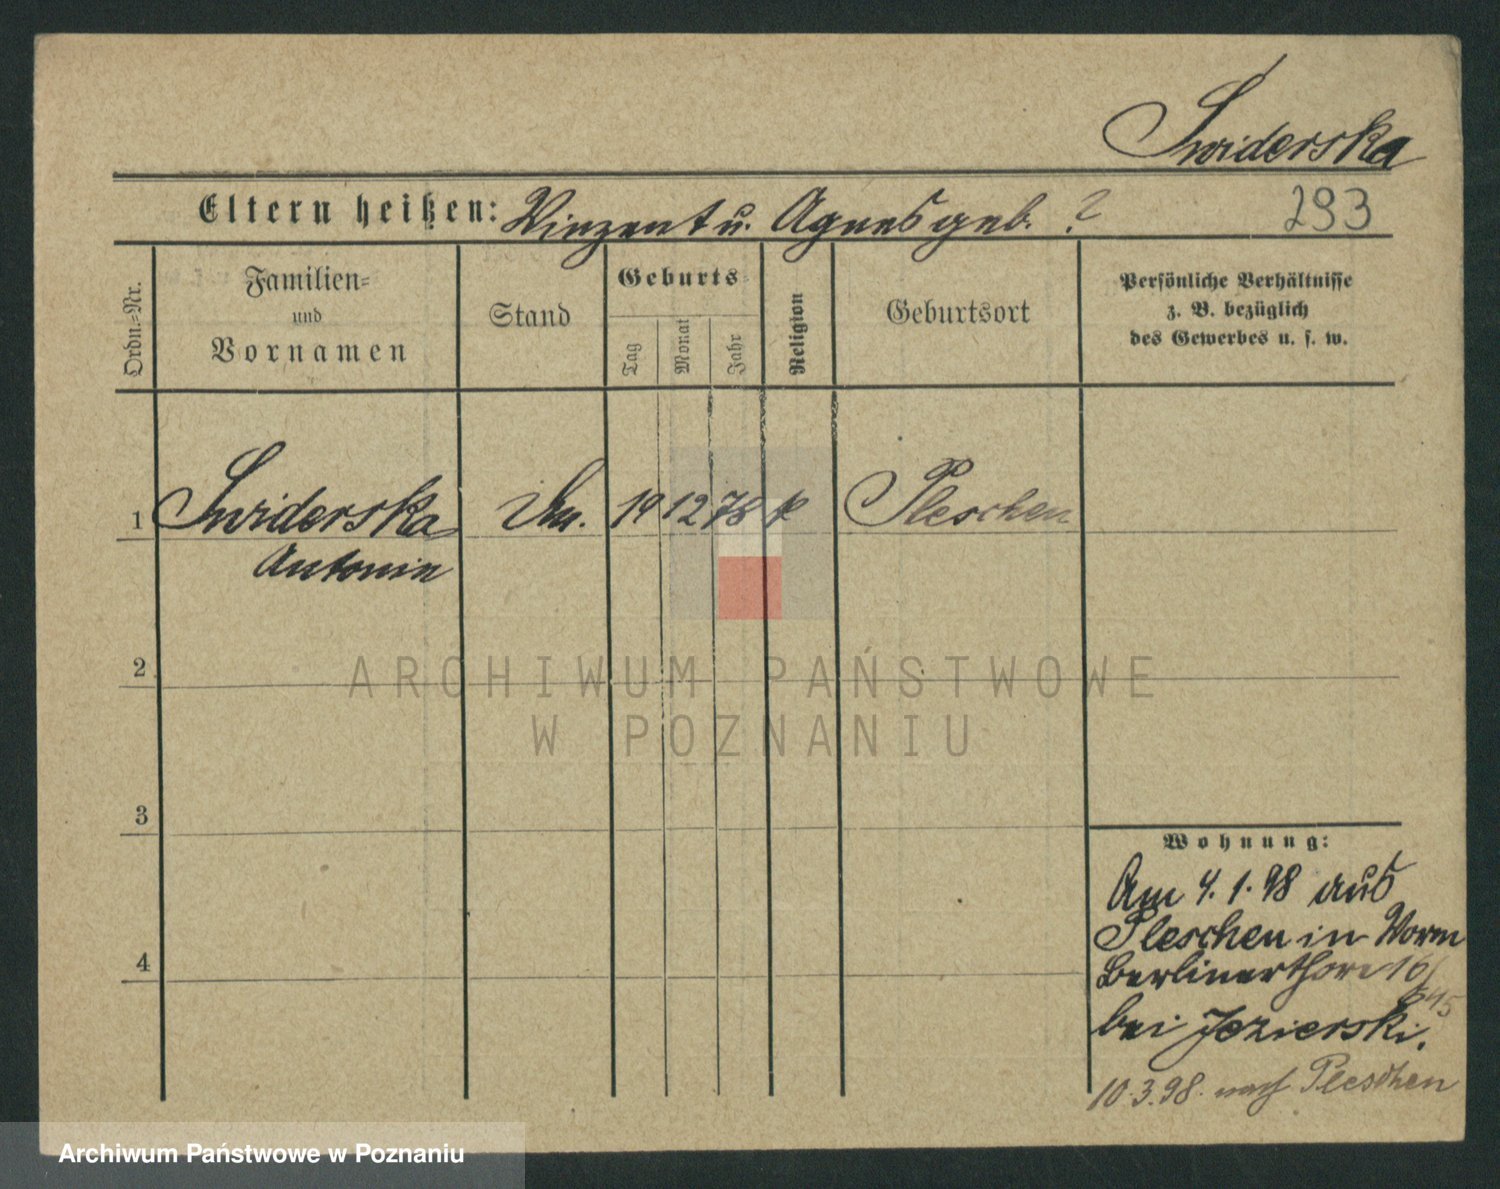 Swiderska
Eltern heißen: Vinzent u. Agnes geb. ?
293
Ordn.-Nr.
Familien-
und
Vornamen
Stand
Geburts-
Tag
Monat
Jahr
Religion
Geburtsort
Persönliche Verhältnisse
z. B. bezüglich
des Gewerbes u. s. w.
1 Swiderska 19 12 78 k Pleschen
Antonie
ARCHIWUM PAŃSTWOWE
W POZNANIU
2
3
4
Wohnung:
Am 4.1.98 aus
Pleschen in Worm
Berlinerthor 16/
bei Jezierski.
10.3.98. nach Pleschen
Archiwum Państwowe w Poznaniu